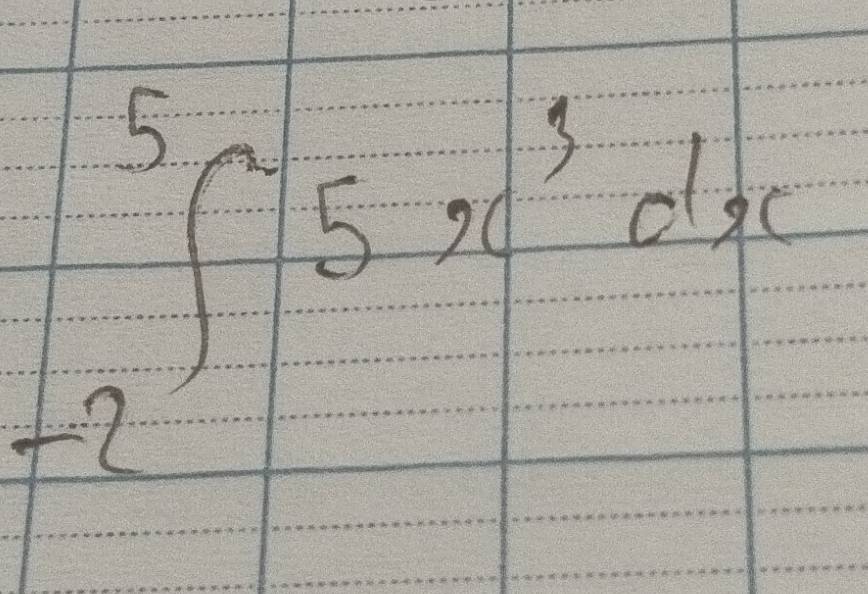 ∫_{-2}^{5} 5x³ dx